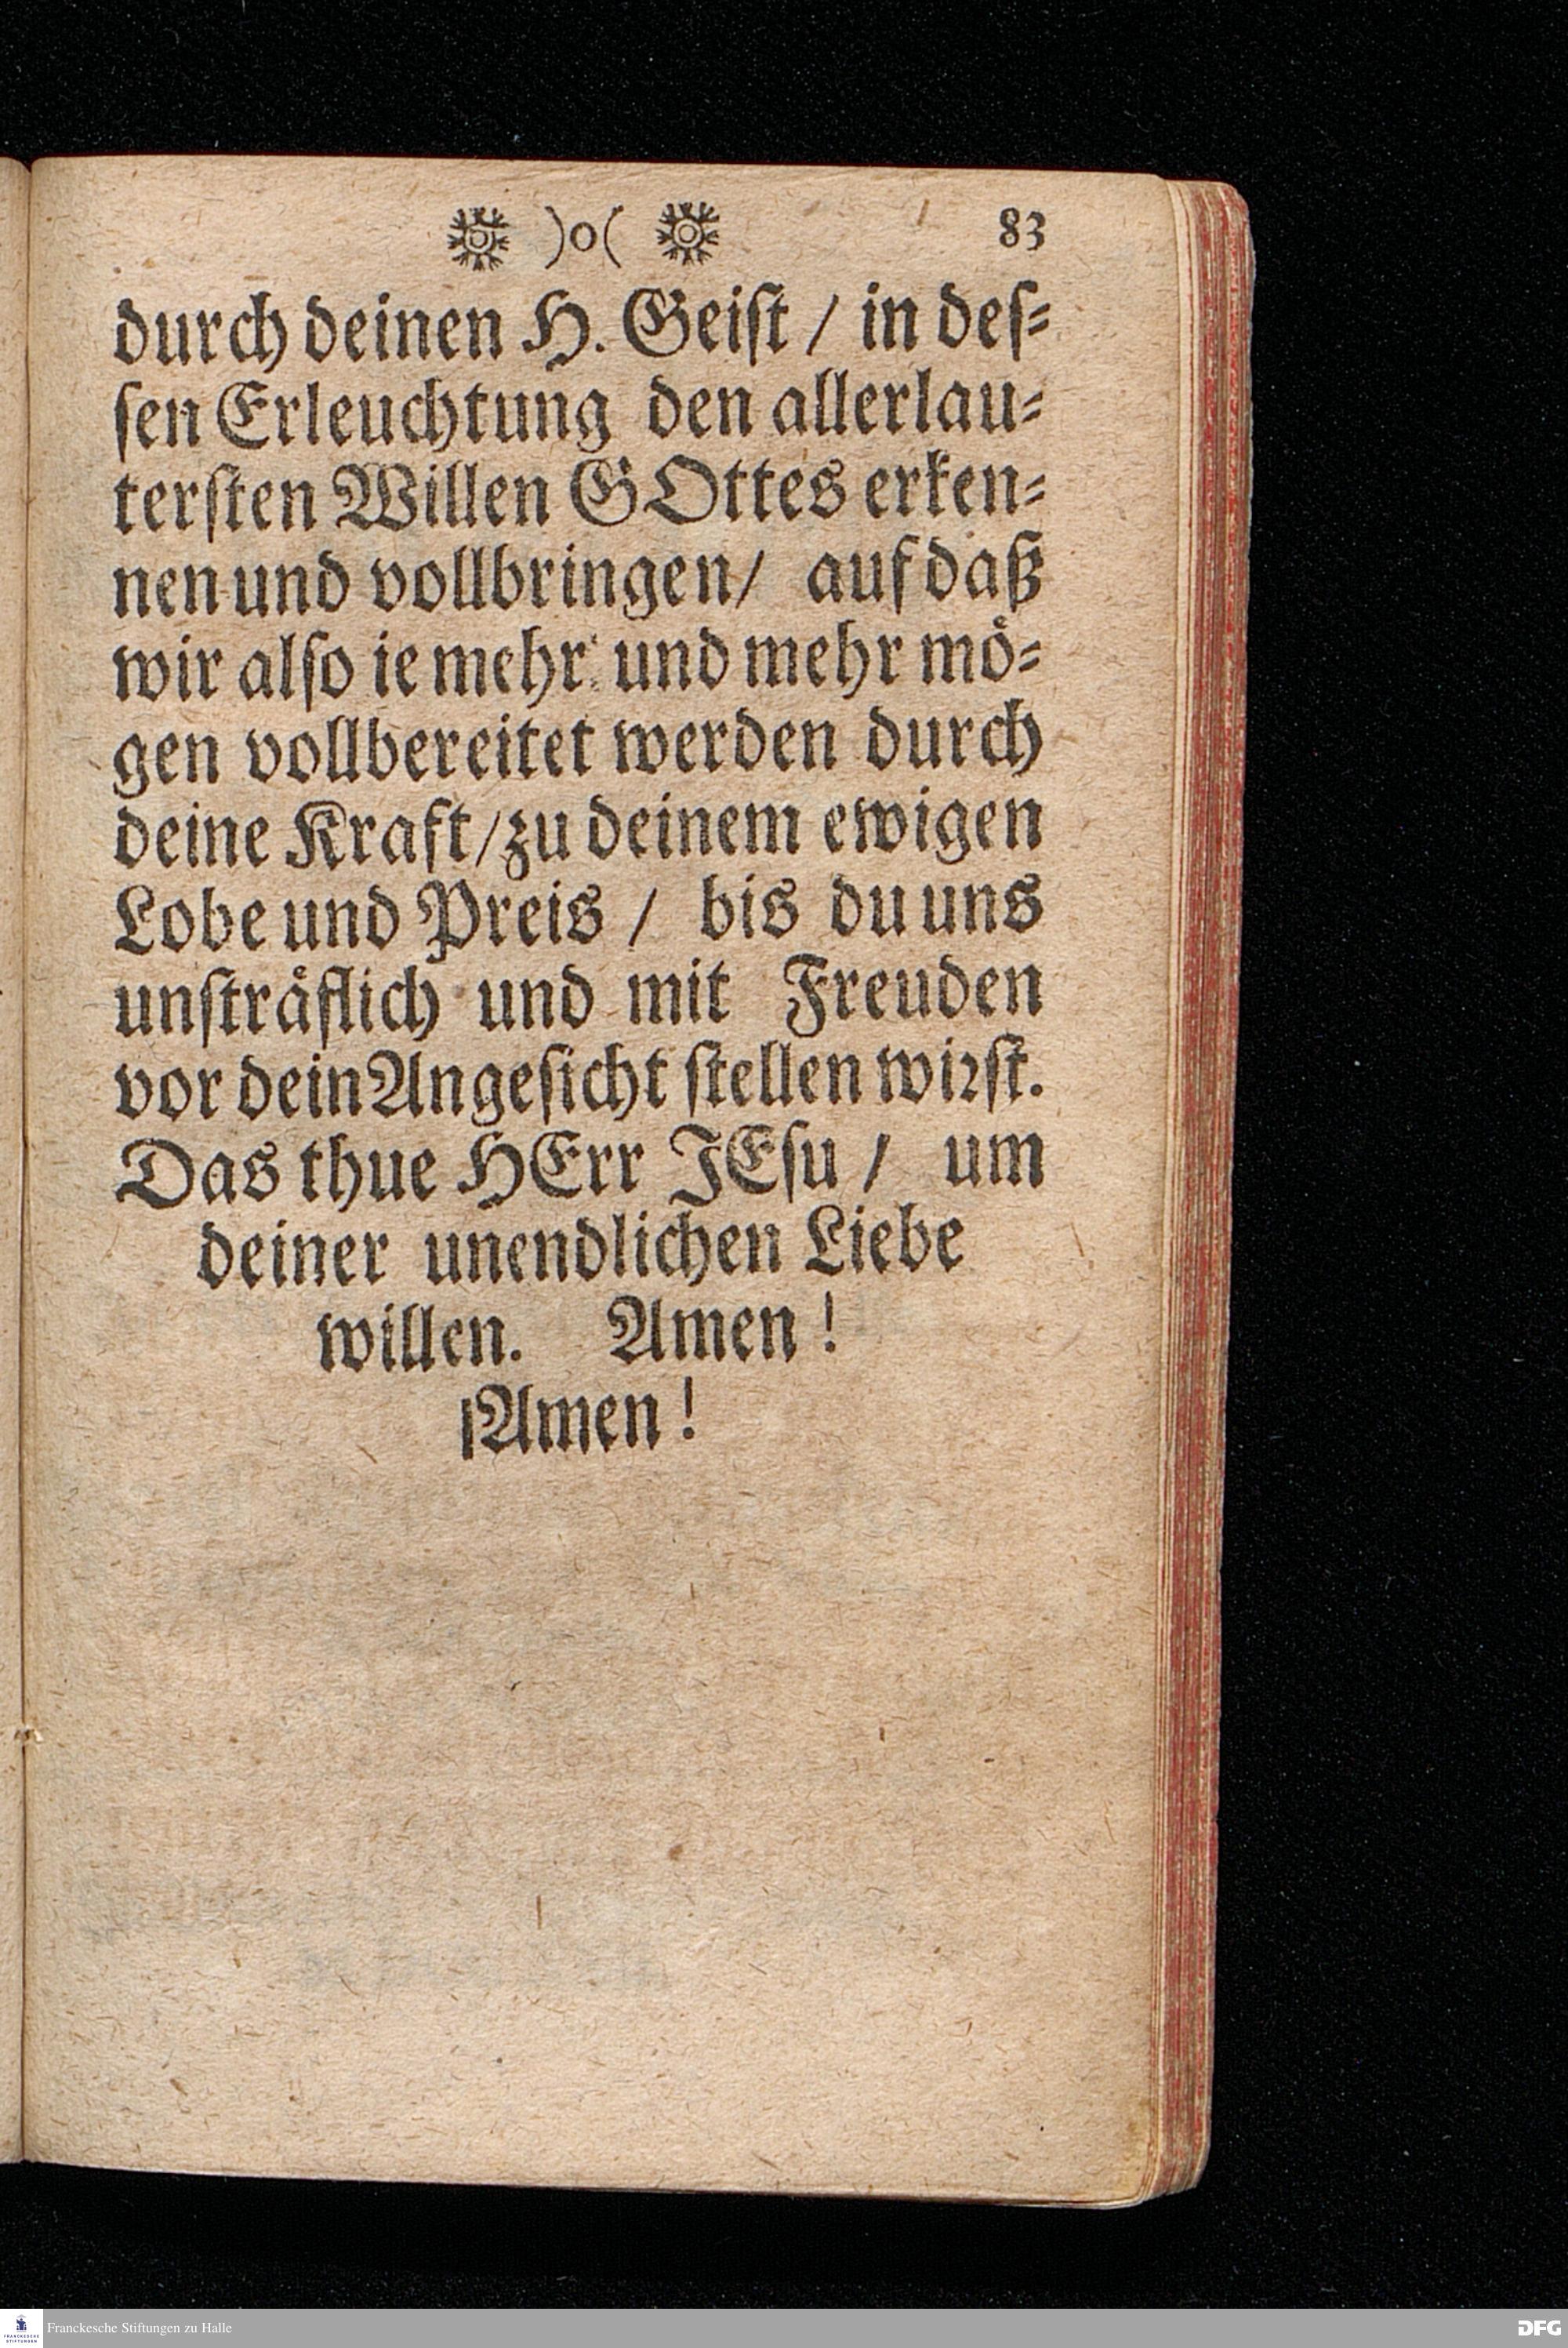 )o( 83
durch deinen H. Geiſt / in deſ⸗
ſen Erleuchtung den allerlau⸗
terſten Willen GOttes erken⸗
nen und vollbringen/ auf daß
wir alſo ie mehr und mehr moͤ⸗
gen vollbereitet werden durch
deine Kraft/zu deinem ewigen
Lobe und Preis / bis du uns
unſtraͤflich und mit Freuden
vor dein Angeſicht ſtellen wiꝛſt.
Das thue HErr JEſu / um
deiner unendlichen Liebe
willen. Amen !
Amen !
FRANCKESCHE
STIFTUNGEN
Franckesche Stiftungen zu Halle
DFG